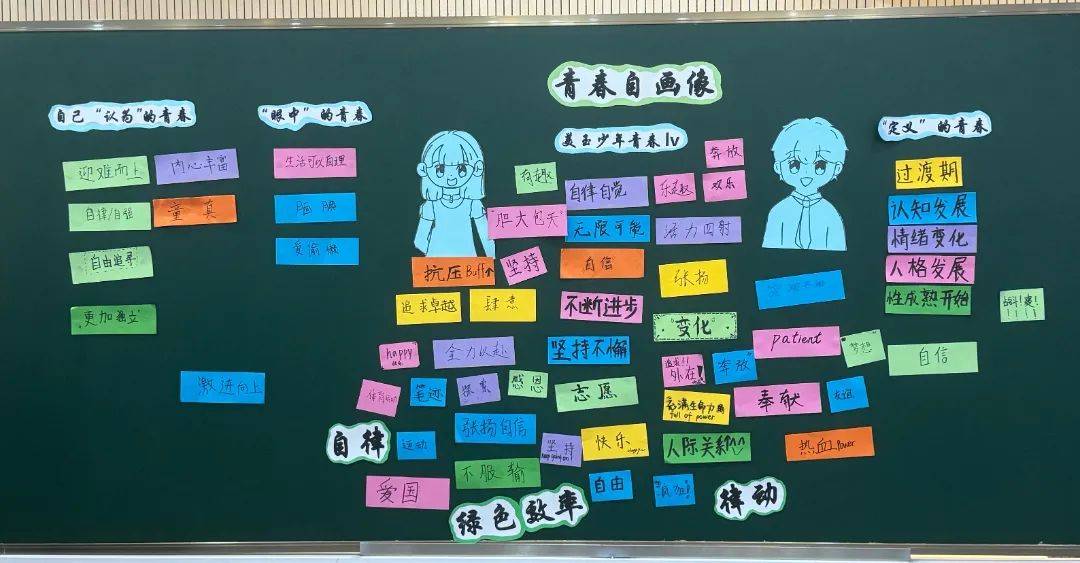 青春自画像
美玉少年青春lv
自己“认为”的青春
迎难而上
内心丰富
自律/自强
童真
自由追寻
更加独立
激进向上
“眼中”的青春
生活可以自理
脑腆
爱偷懒
有趣
自律自觉
乐趣
奔放
欢乐
“胆大包天”
无限可能
活力四射
抗压Buff↑
坚持
自信
张扬
追求卓越
肆意
不断进步
“变化”
happy
全力以赴
坚持不懈
外在!
“奔放”
patient
“梦想”
体育运动
笔迹
探索
感恩
志愿
充满生命力
full of power
奉献
友谊
自律
运动
张扬自信
坚持
快乐
人际关系^^
热血power
爱国
不服输
自由
“疯狂!”
绿色效率
律动
“定义”的青春
过渡期
认知发展
情绪变化
人格发展
性成熟开始
自信